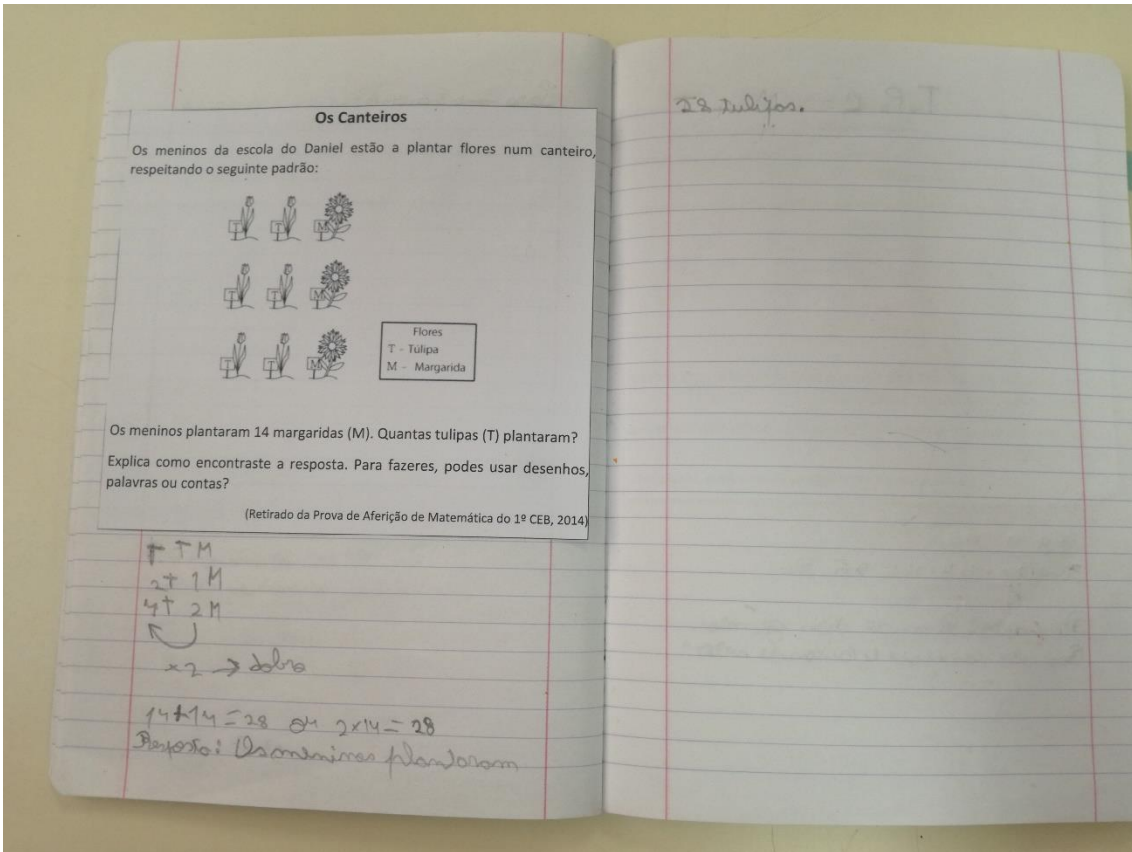 Os Canteiros
Os meninos da escola do Daniel estão a plantar flores num canteiro,
respeitando o seguinte padrão:
T T M
T T M
T T M
Flores
T - Tulipa
M - Margarida
Os meninos plantaram 14 margaridas (M). Quantas tulipas (T) plantaram?
Explica como encontraste a resposta. Para fazeres, podes usar desenhos,
palavras ou contas?
(Retirado da Prova de Aferição de Matemática do 1º CEB, 2014)
T T M
2T 1M
4T 2M
x2 → dobro
14+14=28 ou 2x14=28
Resposta: Os meninos plantaram
28 tulipas.